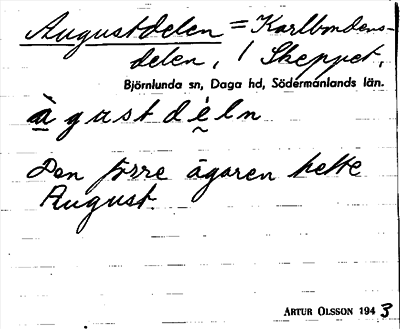 Augustdelen = Karlbondens-
delen, / Skeppet,
Björnlunda sn, Daga hd, Södermanlands län.
àgustdèln
Den förre ägaren hette
August.
ARTUR OLSSON 1943